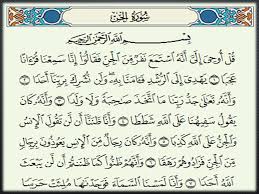 سُورَةُ الجِنِّ
بِسْمِ اللَّهِ الرَّحْمَٰنِ الرَّحِيمِ
قُلْ أُوحِىَ إِلَىَّ أَنَّهُ ٱسْتَمَعَ نَفَرٌ مِّنَ ٱلْجِنِّ فَقَالُوٓا۟ إِنَّا سَمِعْنَا قُرْءَانًا
عَجَبًا ١ يَهْدِىٓ إِلَى ٱلرُّشْدِ فَـَٔامَنَّا بِهِۦ وَلَن نُّشْرِكَ بِرَبِّنَآ أَحَدًا ٢
وَأَنَّهُۥ تَعَٰلَىٰ جَدُّ رَبِّنَا مَا ٱتَّخَذَ صَٰحِبَةً وَلَا وَلَدًا ٣ وَأَنَّهُۥ كَانَ
يَقُولُ سَفِيهُنَا عَلَى ٱللَّهِ شَطَطًا ٤ وَأَنَّا ظَنَنَّآ أَن لَّن تَقُولَ ٱلْإِنسُ
وَٱلْجِنُّ عَلَى ٱللَّهِ كَذِبًا ٥ وَأَنَّهُۥ كَانَ رِجَالٌ مِّنَ ٱلْإِنسِ يَعُوذُونَ بِرِجَالٍ
مِّنَ ٱلْجِنِّ فَزَادُوهُمْ رَهَقًا ٦ وَأَنَّهُمْ ظَنُّوا۟ كَمَا ظَنَنتُمْ أَن لَّن يَبْعَثَ
ٱللَّهُ أَحَدًا ٧ وَأَنَّا لَمَسْنَا ٱلسَّمَآءَ فَوَجَدْنَٰهَا مُلِئَتْ حَرَسًا